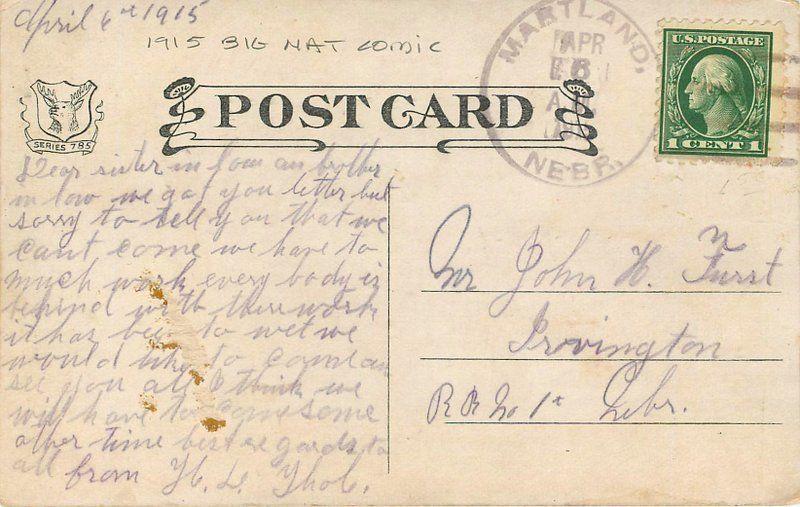 April 6th 1915
1915 BIG HAT COMIC
MARTLAND,
APR
6
A
NEBR.
U.S. POSTAGE
1 CENT 1
POST CARD
SERIES 785
Dear sister in low an brother
in low we got you letter but
sorry to tell you that we
cant come we have to
much work every body is
behind with there work
it has been to wet we
would like to come an
see you all I think we
will have to come some
other time best regards to
all from H. L.
Mr John H. Furst
Irovington
R R No 1st Nebr.